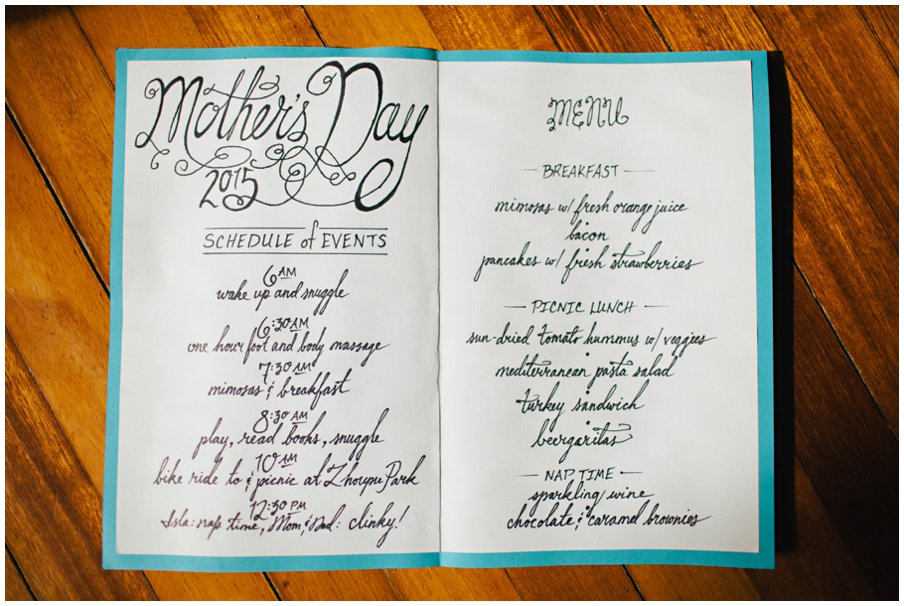 Mother's Day
2015
SCHEDULE of EVENTS
6 AM
wake up and snuggle
6:30 AM
one hour foot and body massage
7:30 AM
mimosas & breakfast
8:30 AM
play, read books, snuggle
10 AM
bike ride to & picnic at Lhoupu Park
12:30 PM
Isla: nap time, Mom & Dad: clinky!
MENU
BREAKFAST
mimosas w/ fresh orange juice
bacon
pancakes w/ fresh strawberries
PICNIC LUNCH
sun-dried tomato hummus w/ veggies
mediterranean pasta salad
turkey sandwich
beergaritas
NAP TIME
sparkling wine
chocolate & caramel brownies